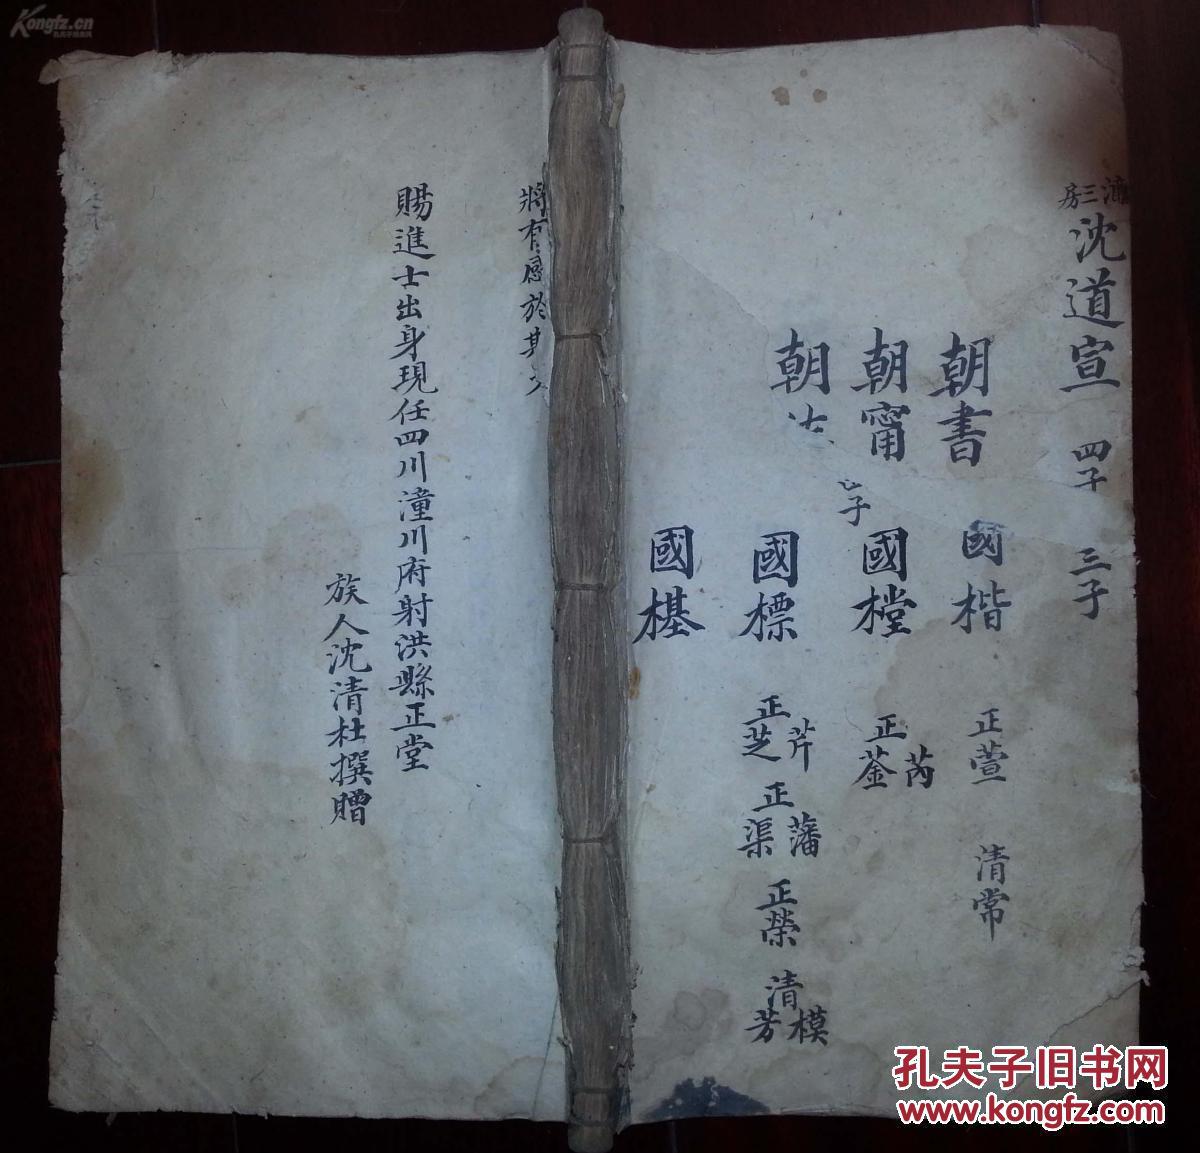 Kongfz.cn
孔夫子旧书网
三房
沈道宣 四子 三子
朝書 國楷 正萱 清常
朝甯 子 國樘 正荃 芮
朝 國標 正芝 芹 正渠 藩 正榮 清芳 模
國棊
將有感於其
賜進士出身現任四川潼川府射洪縣正堂
族人沈清杜撰贈
孔夫子旧书网
www.kongfz.com